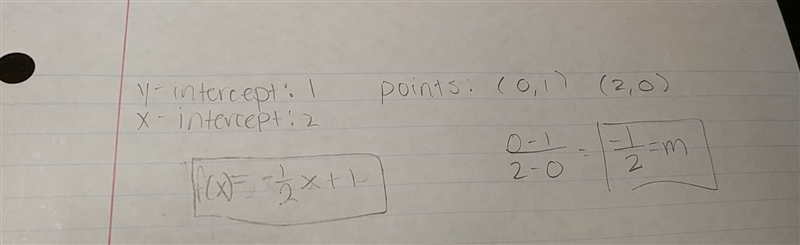 y-intercept: 1 points: (0,1) (2,0)
x-intercept: 2
0-1/2-0 = -1/2 = m
f(x) = -1/2 x + 1